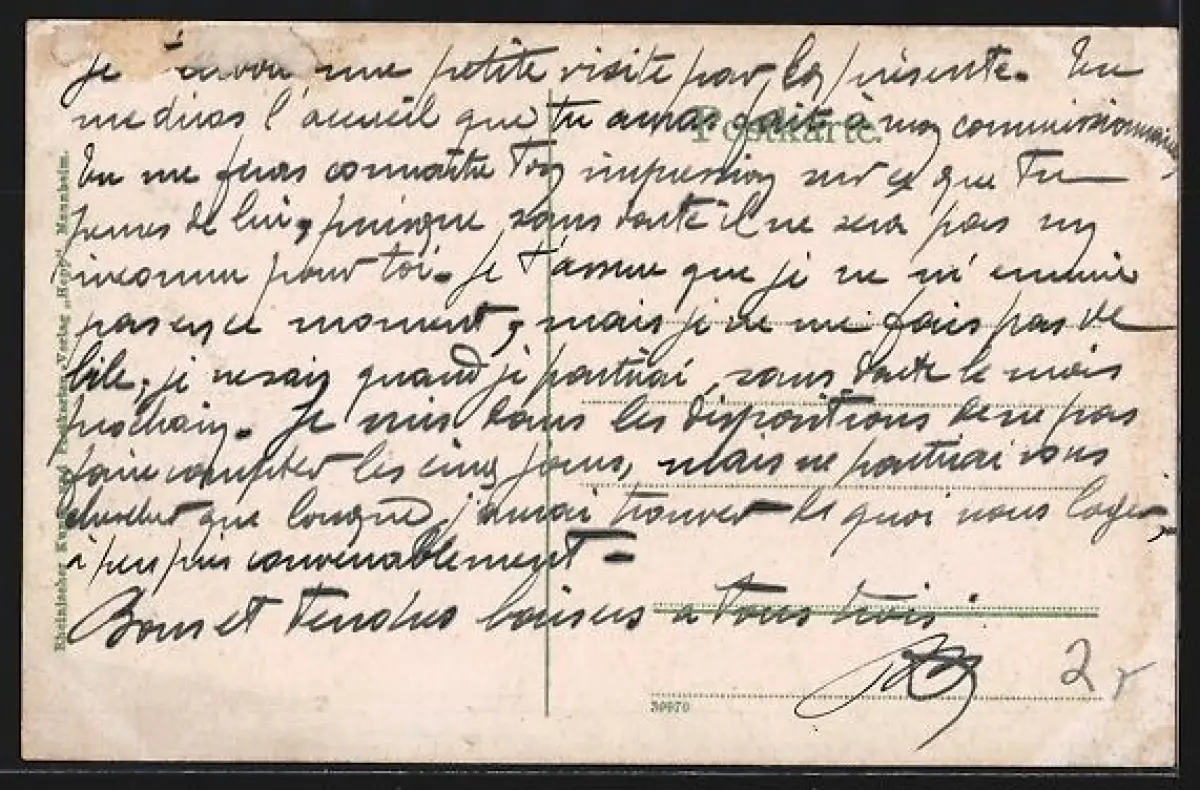 Je t'envoie une petite visite par la présente. Tu
me diras l'accueil que tu auras fait à mon commissionnaire
Postkarte.
Tu me feras connaître ton impression sur ce que tu
penses de lui, puisque sans doute il ne sera pas un
inconnu pour toi. Je t'assure que je ne m'ennuie
pas en ce moment, mais je ne me fais pas de
bile, je ne sais quand je partirai, sans doute le mois
prochain. Je suis dans les dispositions de ne pas
faire compter les cinq jours, mais ne partirai vous
chercher que lorsque j'aurai trouver de quoi nous loger,
à peu près convenablement.
Bons et tendres baisers a tous trois
39970
2
Rheinischer Kunst- und Postkarten-Verlag „Hepp“, Mannheim.